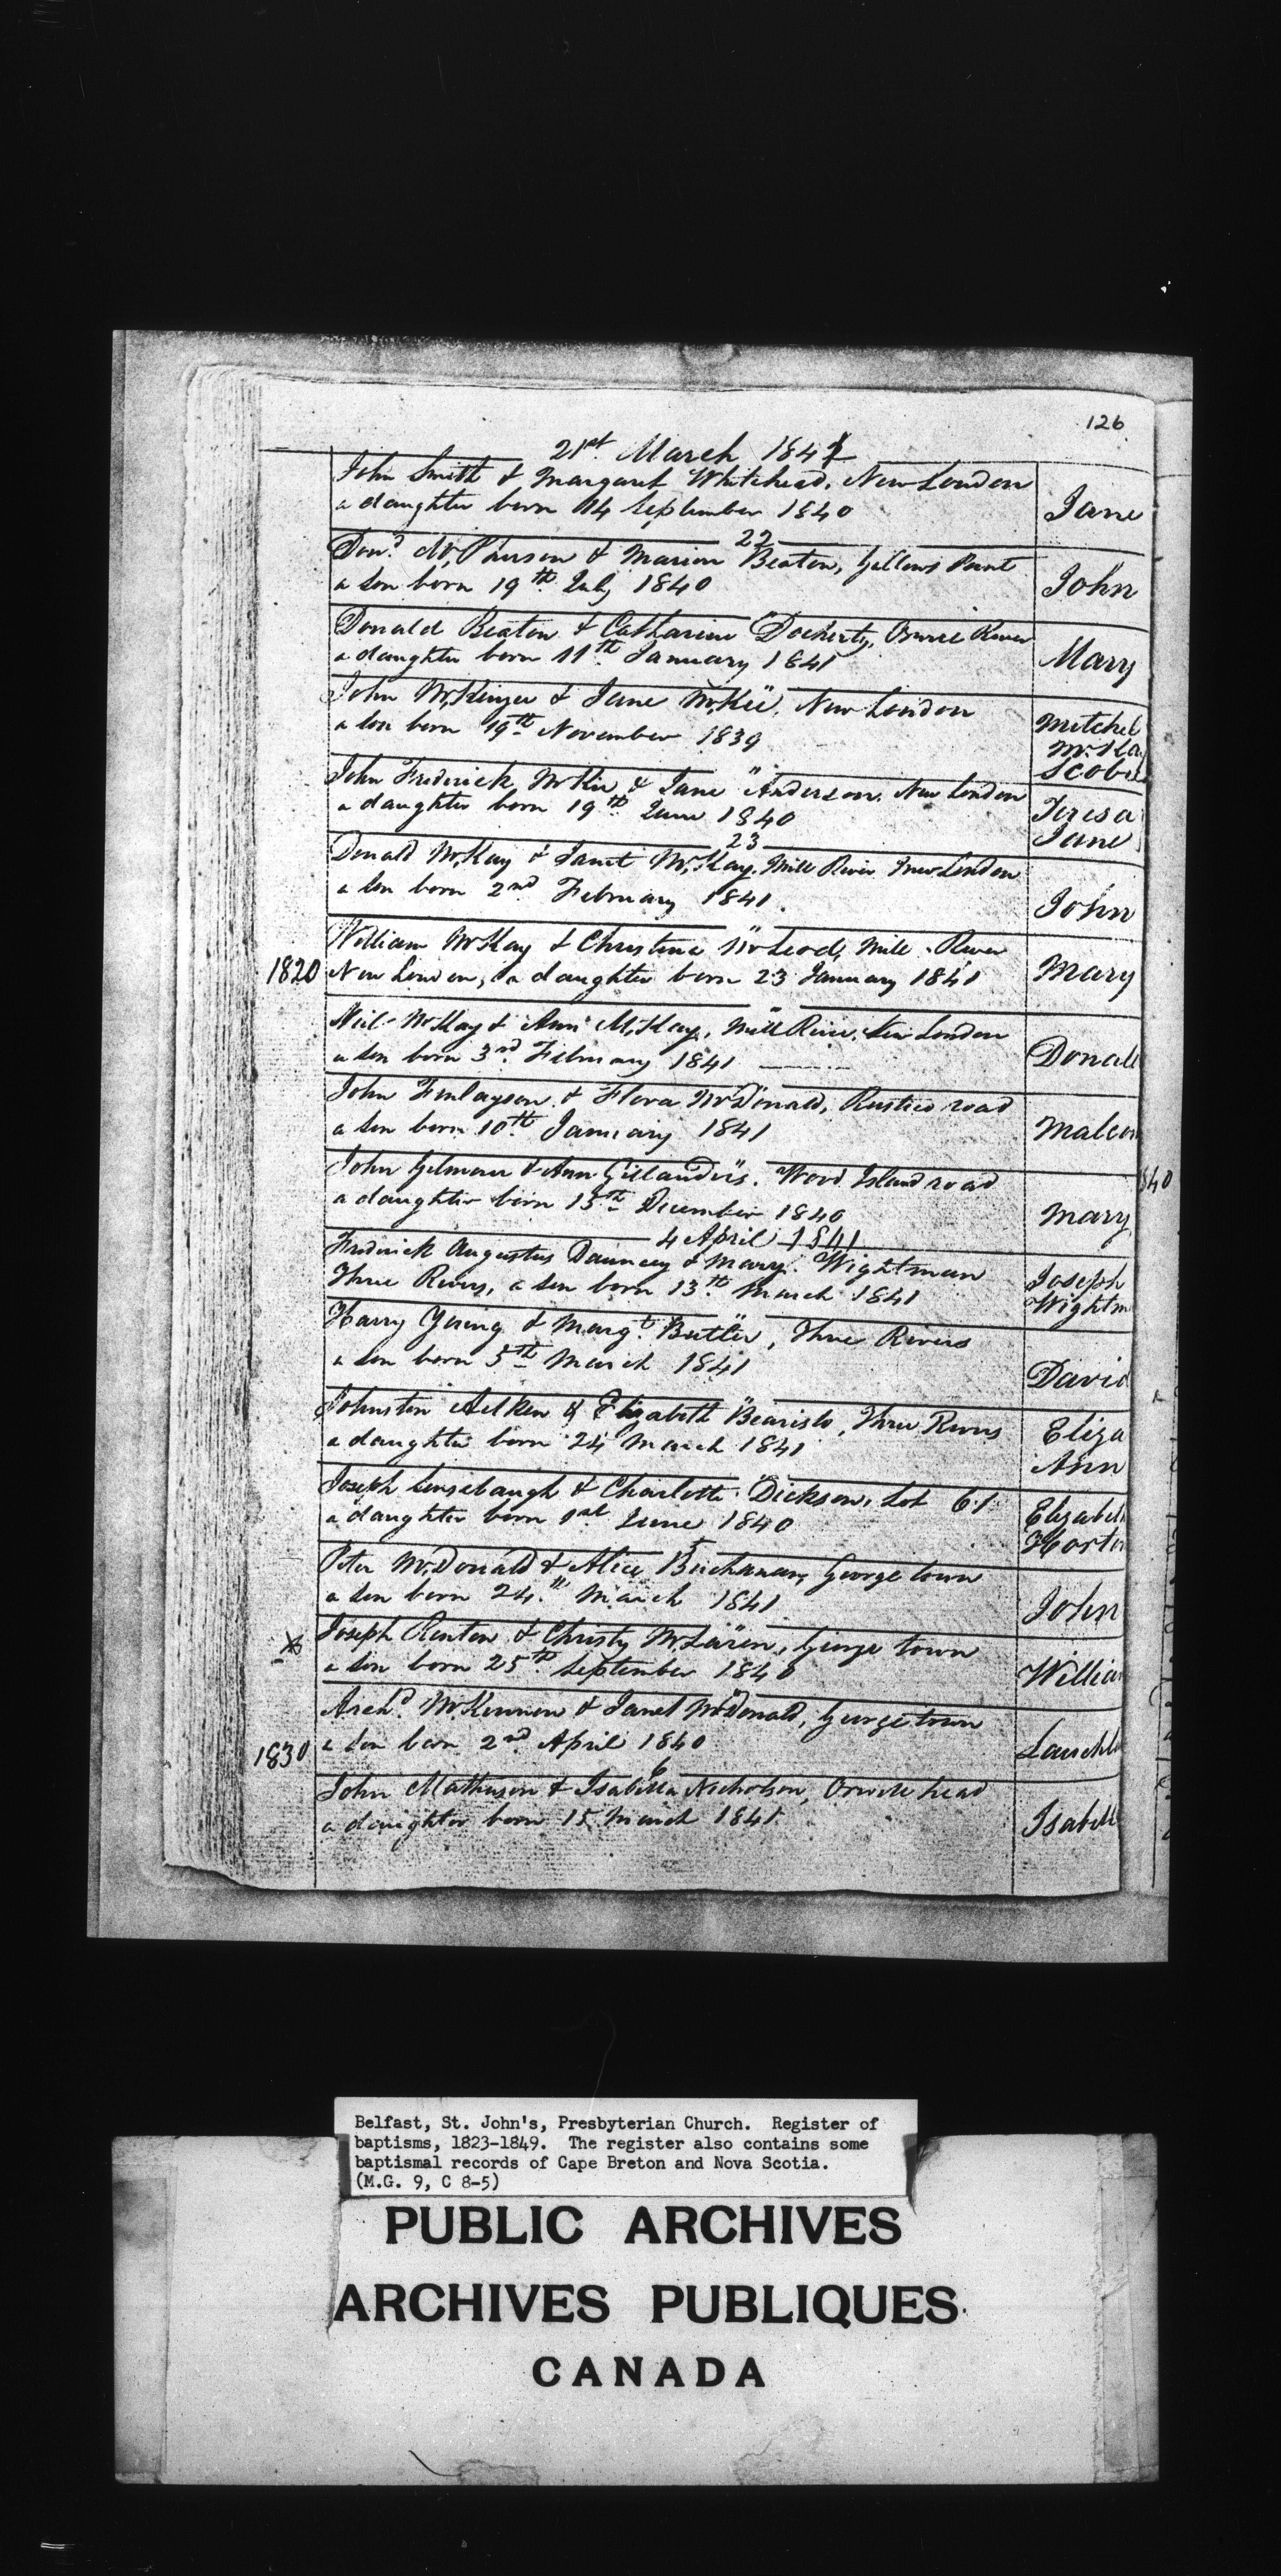 126
21st March 1841
John Smith & Margaret Whitehead, New London
a daughter born 14 September 1840
Jane
22
Don.d McPherson & Marion Beaton, Gallows Point
a son born 19th July 1840
John
"
Donald Beaton & Catharine Docherty, River
a daughter born 11th January 1841
Mary
"
John & Jane McKie, New London
a son born 19th November 1839
Mitchel
"
John Frederick McKie & Jane Anderson, New London
a daughter born 19th June 1840
Teresa
Jane
23
Donald McKay & Janet McKay, Mill River New London
a son born 2nd February 1841.
John
"
William McKay & Christina McLeod, Mill River
1820 New London, a daughter born 23 January 1841
Mary
"
Neil McKay & Ann McKay, Mill River, New London
a son born 3rd February 1841
Donald
"
John Finlayson & Flora McDonald, Rustico road
a son born 10th January 1841
Malcom
"
John Gilmour & Ann Gillanders. Wood Island road
a daughter born 15th December 1840
Mary
840
4 April 1841
Frederick Augustus Dauncey & Mary Wightman
Three Rivers, a son born 13th March 1841
Joseph
Wightm
"
Harry Young & Marg.t Butler, Three Rivers
a son born 5th March 1841
David
"
Johnston Aitken & Elizabeth Bearisto, Three Rivers
a daughter born 24 March 1841
Eliza
Ann
"
Joseph & Charlotte Dickson, Lot 61
a daughter born 1st June 1840
Elizabeth
5
Peter McDonald & Alice Buchanan, George town
a son born 24th March 1841
John
"
Joseph Renton & Christy McLaren, George town
a son born 25th September 1840
Willia
"
Arch.d McKinnon & Janet McDonald, George town
1830 a son born 2nd April 1840
Lauchl
6
John Matheson & Isabella Nicholson, Orwell head
a daughter born 15 March 1841
Isabell
Belfast, St. John's, Presbyterian Church. Register of
baptisms, 1823-1849. The register also contains some
baptismal records of Cape Breton and Nova Scotia.
(M.G. 9, C 8-5)
PUBLIC ARCHIVES
ARCHIVES PUBLIQUES
CANADA